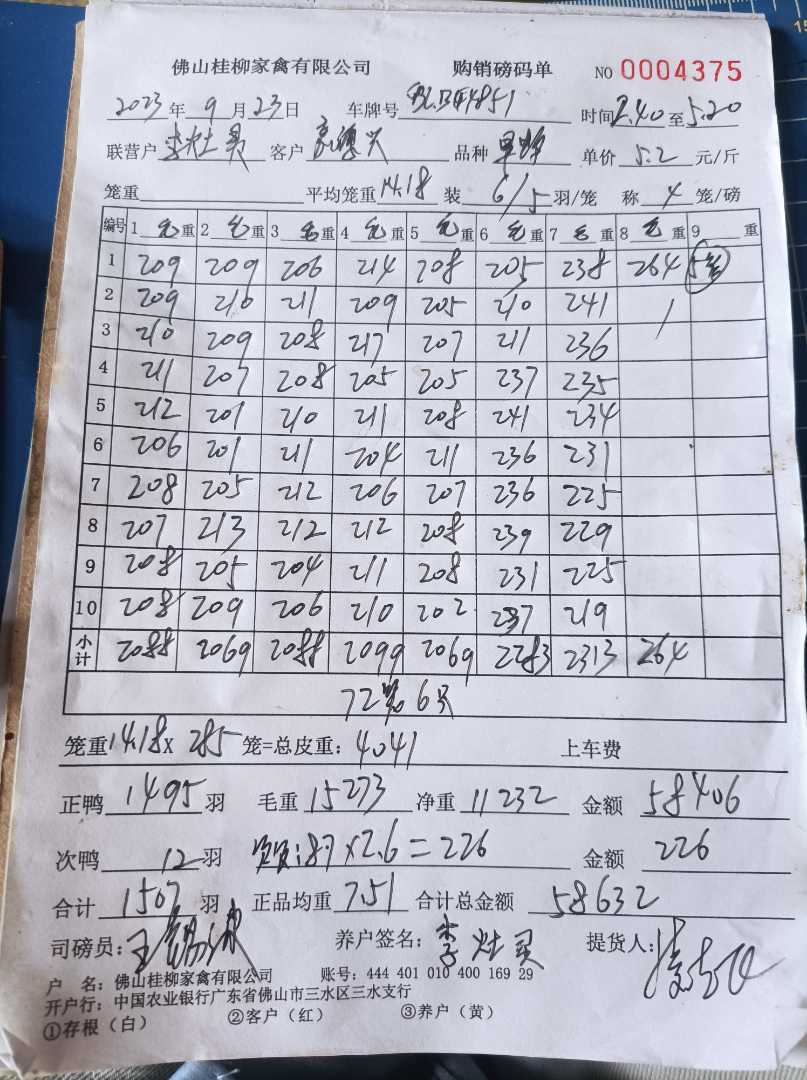 佛山桂柳家禽有限公司 购销磅码单 NO 0004375
2023年9月23日 车牌号 时间2.40至5.20
联营户 李灶 客户 品种 单价5.2元/斤
笼重 平均笼重14.18 装6/5羽/笼 称4笼/磅
编号 1毛重 2毛重 3毛重 4毛重 5毛重 6毛重 7毛重 8毛重 9重
1 209 209 206 214 208 205 238 264 5笼
2 209 210 211 209 205 210 241
3 210 209 208 217 207 211 236
4 211 207 208 205 205 237 235
5 212 201 210 211 208 241 234
6 206 201 211 204 211 236 231
7 208 205 212 206 207 236 225
8 207 213 212 212 208 239 229
9 208 205 204 211 208 231 225
10 208 209 206 210 202 237 219
小计 2088 2069 2088 2099 2069 2283 2313 264
72 6只
笼重14.18X 285笼=总皮重:4041 上车费
正鸭1495羽 毛重15273 净重11232 金额58406
次鸭12羽 87×2.6=226 金额226
合计1507羽 正品均重7.51 合计总金额58632
司磅员: 养户签名:李灶 提货人:
户 名:佛山桂柳家禽有限公司 账号:444 401 010 400 169 29
开户行:中国农业银行广东省佛山市三水区三水支行
①存根(白) ②客户(红) ③养户(黄)